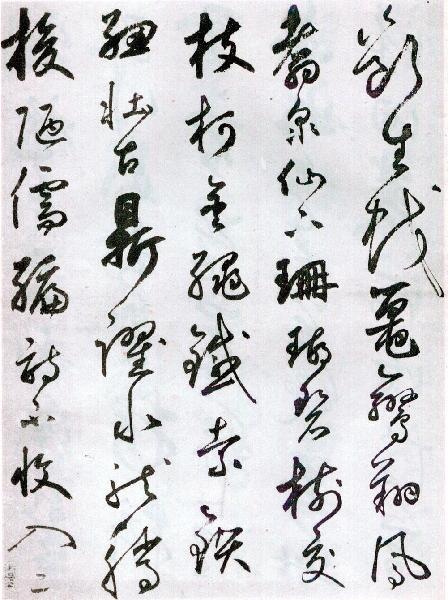 斷生蛟鼉鸞翔鳳
翥衆仙下珊瑚碧樹交
枝柯金繩鐵索鎖
紐壯古鼎躍水龍騰
梭陋儒編詩不收入二